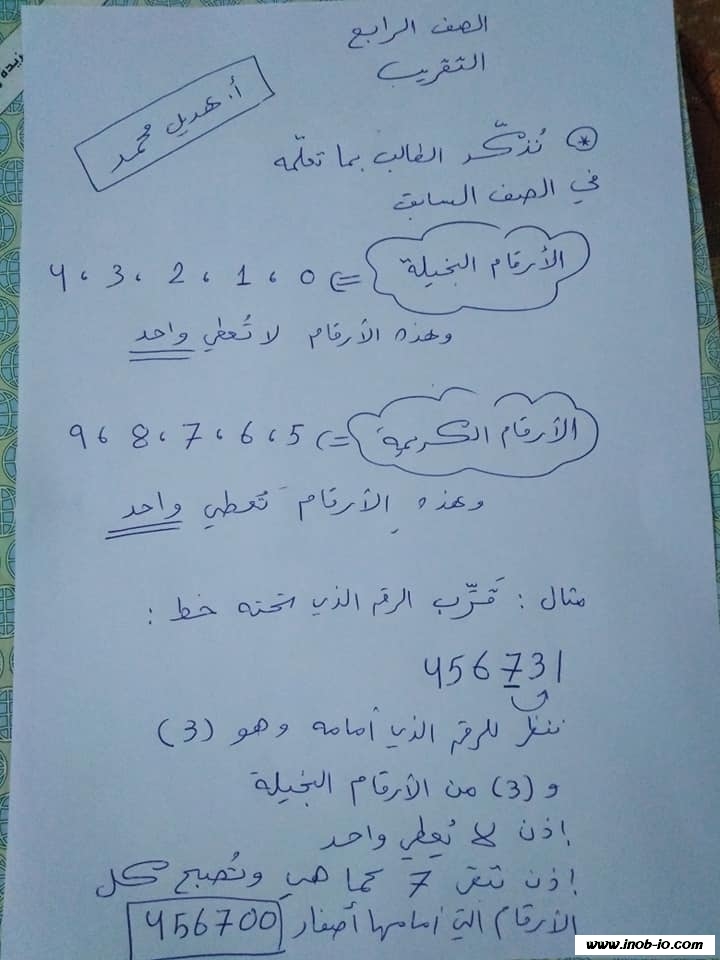 الصف الرابع
التقريب
أ. هديل محمد
* نُذكّر الطالب بما تعلّمه
في الصف السابق
الأرقام البخيلة => 0 ، 1 ، 2 ، 3 ، 4
وهذه الأرقام لا تُعطي واحد
الأرقام الكريمة => 5 ، 6 ، 7 ، 8 ، 9
وهذه الأرقام تُعطي واحد
مثال : قَرِّب الرقم الذي تحته خط :
456731
ننظر للرقم الذي أمامه وهو (3)
و (3) من الأرقام البخيلة
إذن لا يُعطي واحد
إذن تبقى 7 كما هي وتُصبح كل
الأرقام التي أمامها أصفار 456700
www.inob-io.com